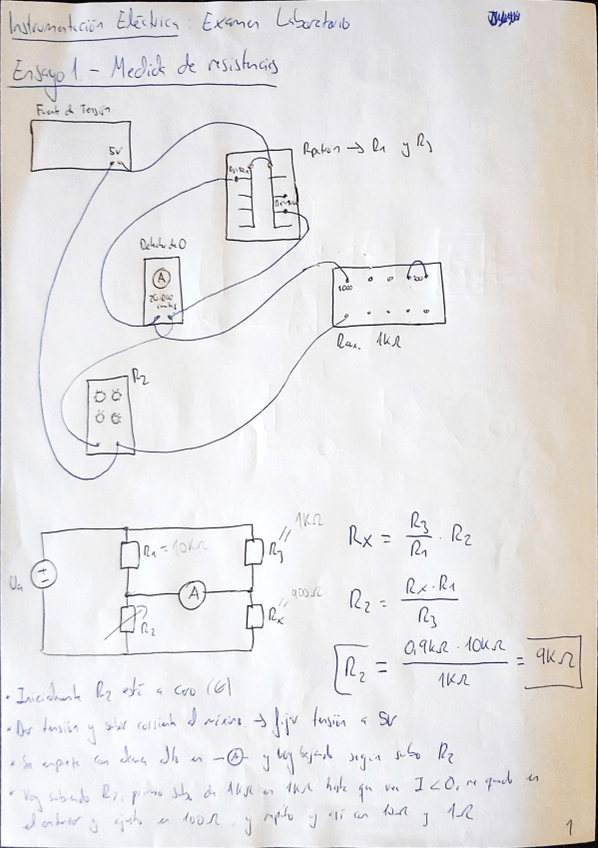 Instrumentación Eléctrica: Examen Laboratorio
Ensayo 1.- Medida de resistencias
Fuente de Tensión
5V
R1 y R3
Detector de 0
A
20.000
1000
Rx 1kΩ
R2
1kΩ
R1 = 10kΩ
R3
Rx = R3/R1 · R2
A
900Ω
R2
Rx
R2 = Rx·R1/R3
R2 = 0,9kΩ · 10kΩ/1kΩ = 9kΩ
· Inicialmente R2 está a cero
· Dar tensión y subir corriente al máximo → fijar tensión a 5V
· Se empieza con escala alta en -A- y voy bajando según subo R2
· Voy subiendo R2, primero subo de 1kΩ en 1kΩ hasta que vea I<0, me quedo en
el anterior y ajusto en 100Ω y repito y así con 10Ω y 1Ω
1